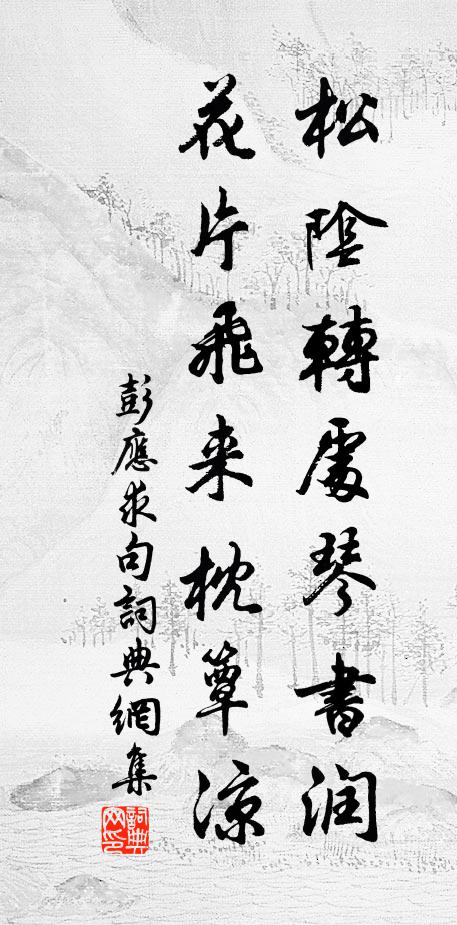 松陰轉處琴書潤
花片飛来枕簟凉
彭應求句詞典網集
詞典网印